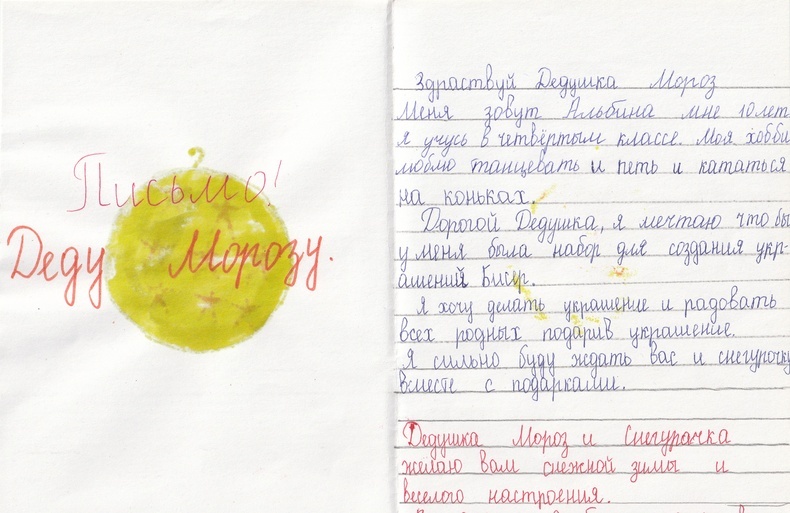 Письмо!
Деду Морозу.
Здраствуй Дедушка Мороз
Меня зовут Альбина мне 10 лет
я учусь в четвёртым классе. Моя хобби
люблю танцевать и петь и кататься
на коньках.
Дорогой Дедушка, я мечтаю что бы
у меня была набор для создания укр-
ашений Бисер.
Я хочу делать украшение и радовать
всех родных подарив украшение.
Я сильно буду ждать вас и снегурочку
вместе с подарками.
Дедушка Мороз и Снегурачка
желаю вам снежной зимы и
веселого настроения.